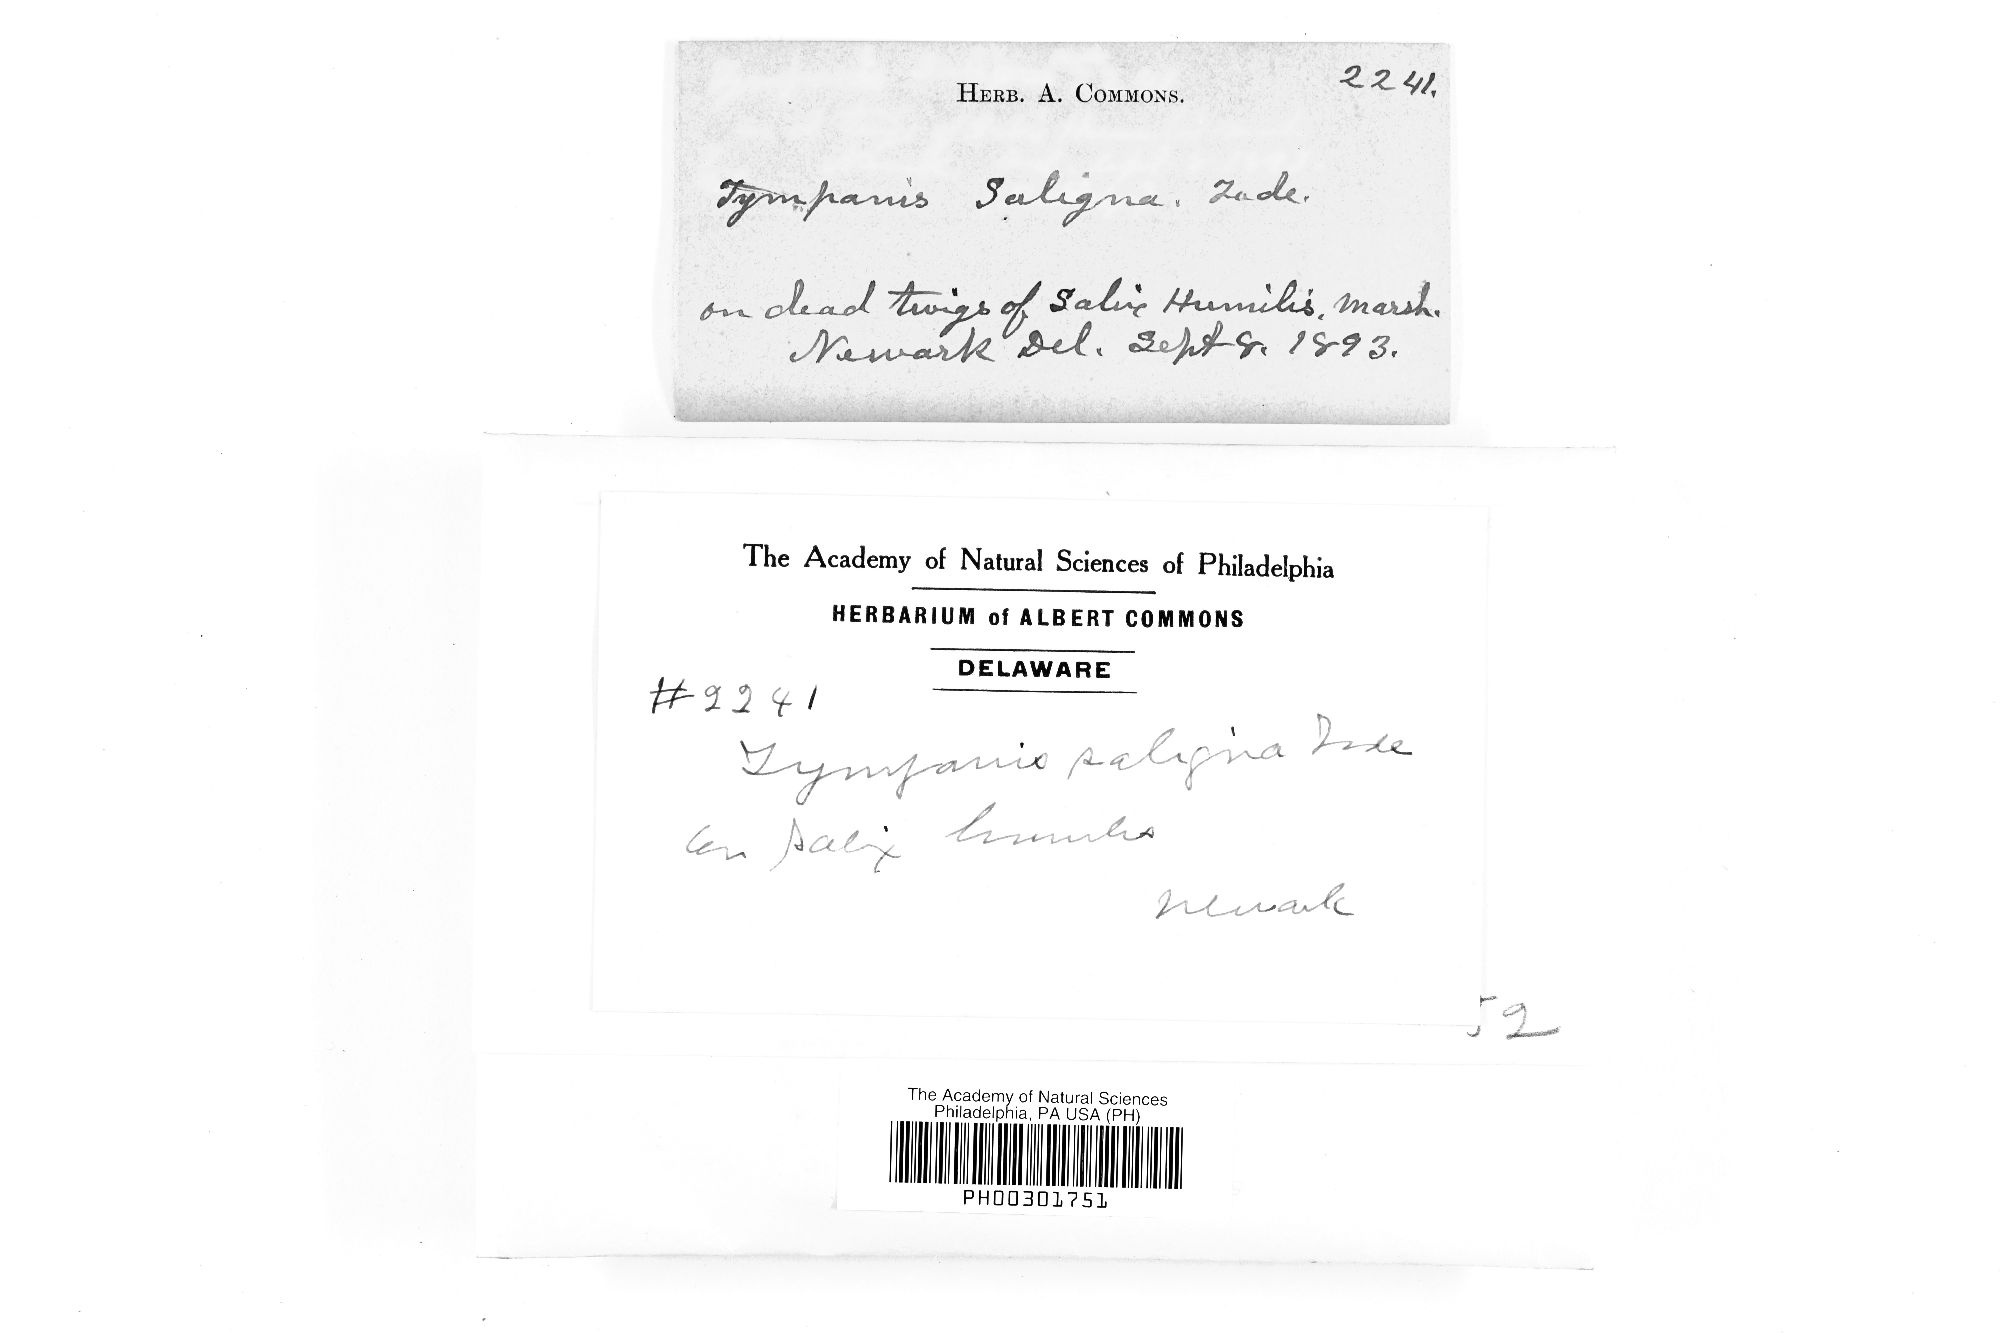 HERB. A. COMMONS.
2241.
Tympanis Saligna. Tode.
on dead twigs of Salix Humilis, Marsh.
Newark Del. Sept 8. 1893.
The Academy of Natural Sciences of Philadelphia
HERBARIUM of ALBERT COMMONS
DELAWARE
#2241
Tympanis saligna Tode
on Salix humilis
Newark
52
The Academy of Natural Sciences
Philadelphia, PA USA (PH)
PH00301751